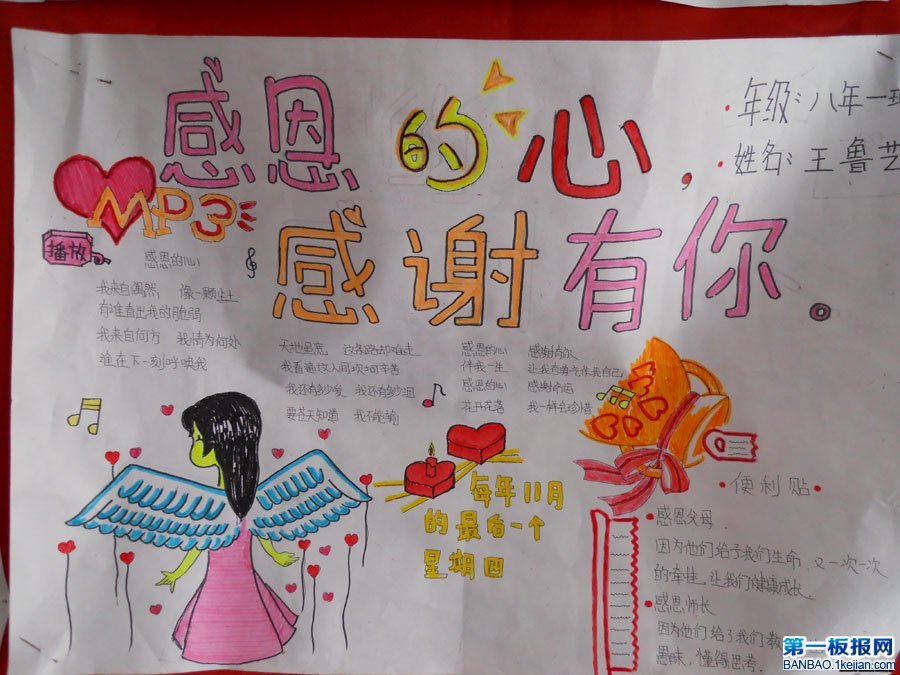 感恩的心,
年级:八年一班
姓名:王鲁艺
MP3
感谢有你。
播放
感恩的心
我来自偶然, 像一颗尘土
有谁看出我的脆弱
我来自何方 我情归何处
谁在下一刻呼唤我
天地虽宽, 这条路却难走
我看遍这人间坎坷辛苦
我还有多少爱 我还有多少泪
要苍天知道 我不认输
感恩的心 感谢有你
伴我一生 让我有勇气作我自己
感恩的心 感谢命运
花开花落 我一样会珍惜
每年11月
的最后一个
星期四
·便利贴·
感恩父母.
因为他们给予我们生命,又一次一次
的牵挂,让我们健康成长.
感恩师长
因为他们给了我们教
愚昧,懂得思考.
第一板报网
BANBAO.1kejian.com